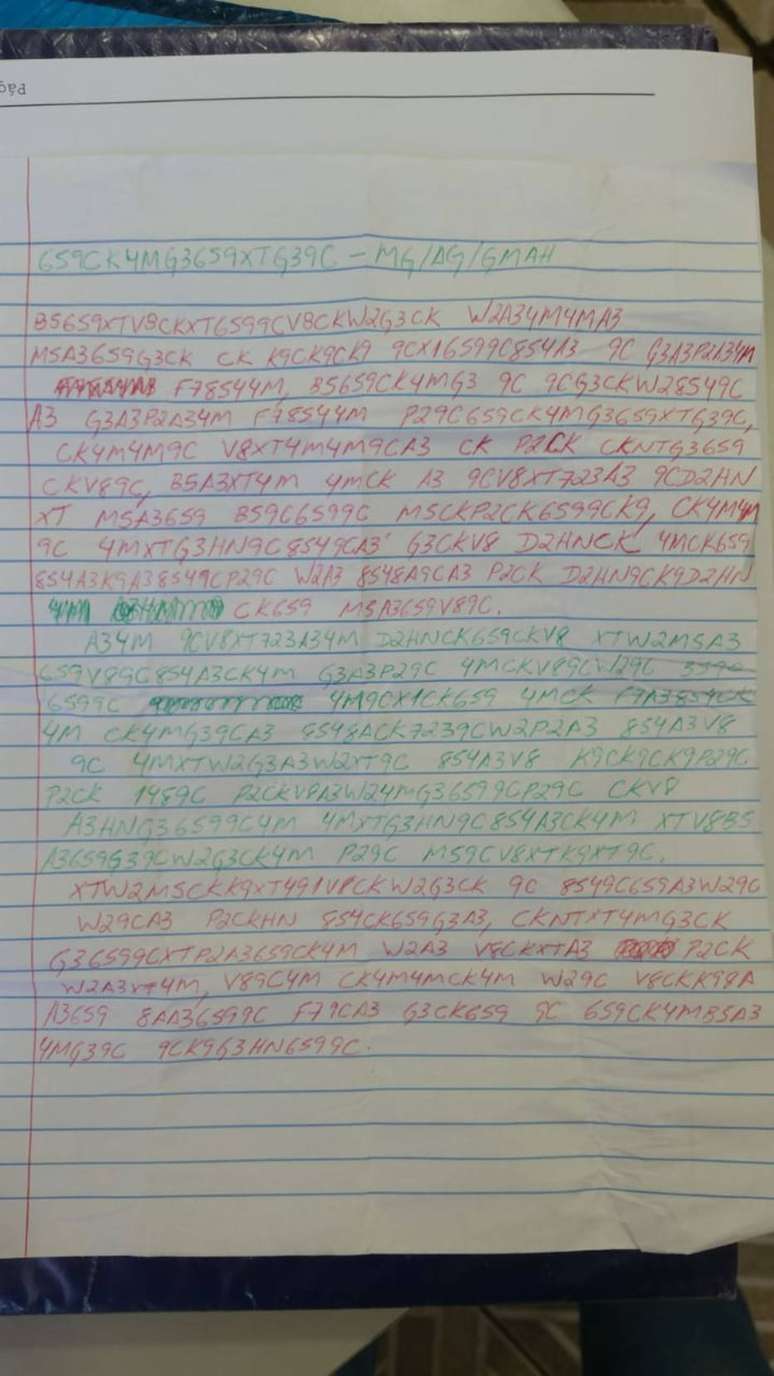 Pág
659CK4MG3659XTG39C - MG/AG/GMAH
B5659XTV89CKXT6599CV8CKW2G3CK W2A34M4MA3
M5A3659G3CK CK K9CK9CK9 9CX16599C854A3 9C G3A3P2A34M
F78544M, B5659CK4MG3 9C 9CG3CKW28549C
A3 G3A3P2A34M F78544M P29C659CK4MG3659XTG39C,
CK4M4M9C V8XT4M4M9CA3 CK P2CK CKNTG3659
CKV89C, B5A3XT4M 4MCK A3 9CV8XT723A3 9CD2HN
XT M5A3659 B59C6599C M5CKP2CK6599CK9, CK4M4M
9C 4MXTG3HN9C8549CA3 G3CKV8 D2HNCK 4MCK659
854A3K9A38549CP29C W2A3 8548A9CA3 P2CK D2HN9CK9D2HN
CK659 M5A3659V89C.
A34M 9CV8XT723A34M D2HNCK659CKV8 XTW2M5A3
659V89C854A3CK4M G3A3P29C 4MCKV89CW29C
6599C 4M9CX1CK659 4MCK F7A3854CK
4M CK4MG39CA3 8548ACK7239CW2P2A3 854A3V8
9C 4MXTW2G3A3W2XT9C 854A3V8 K9CK9CK9P29C
P2CK 1489C P2CKV8A3W24MG36599CP29C CKV8
A3HNG36599C4M 4MXTG3HN9C854A3CK4M XTV8B5
A3659G39CW2G3CK4M P29C M59CV8XTK9XT9C.
XTW2M5CKK9XT491V8CKW2G3CK 9C 8549C659A3W29C
W29CA3 P2CKHN 854CK659G3A3, CKNTXT4MG3CK
G36599CXTP2A3659CK4M W2A3 V8CKXTA3 P2CK
W2A3XT4M, V89C4M CK4M4MCK4M W29C V8CKK98A
A3659 8AA36599C F79CA3 G3CK659 9C 659CK4MB5A3
4MG39C 9CK9G3HN6599C.